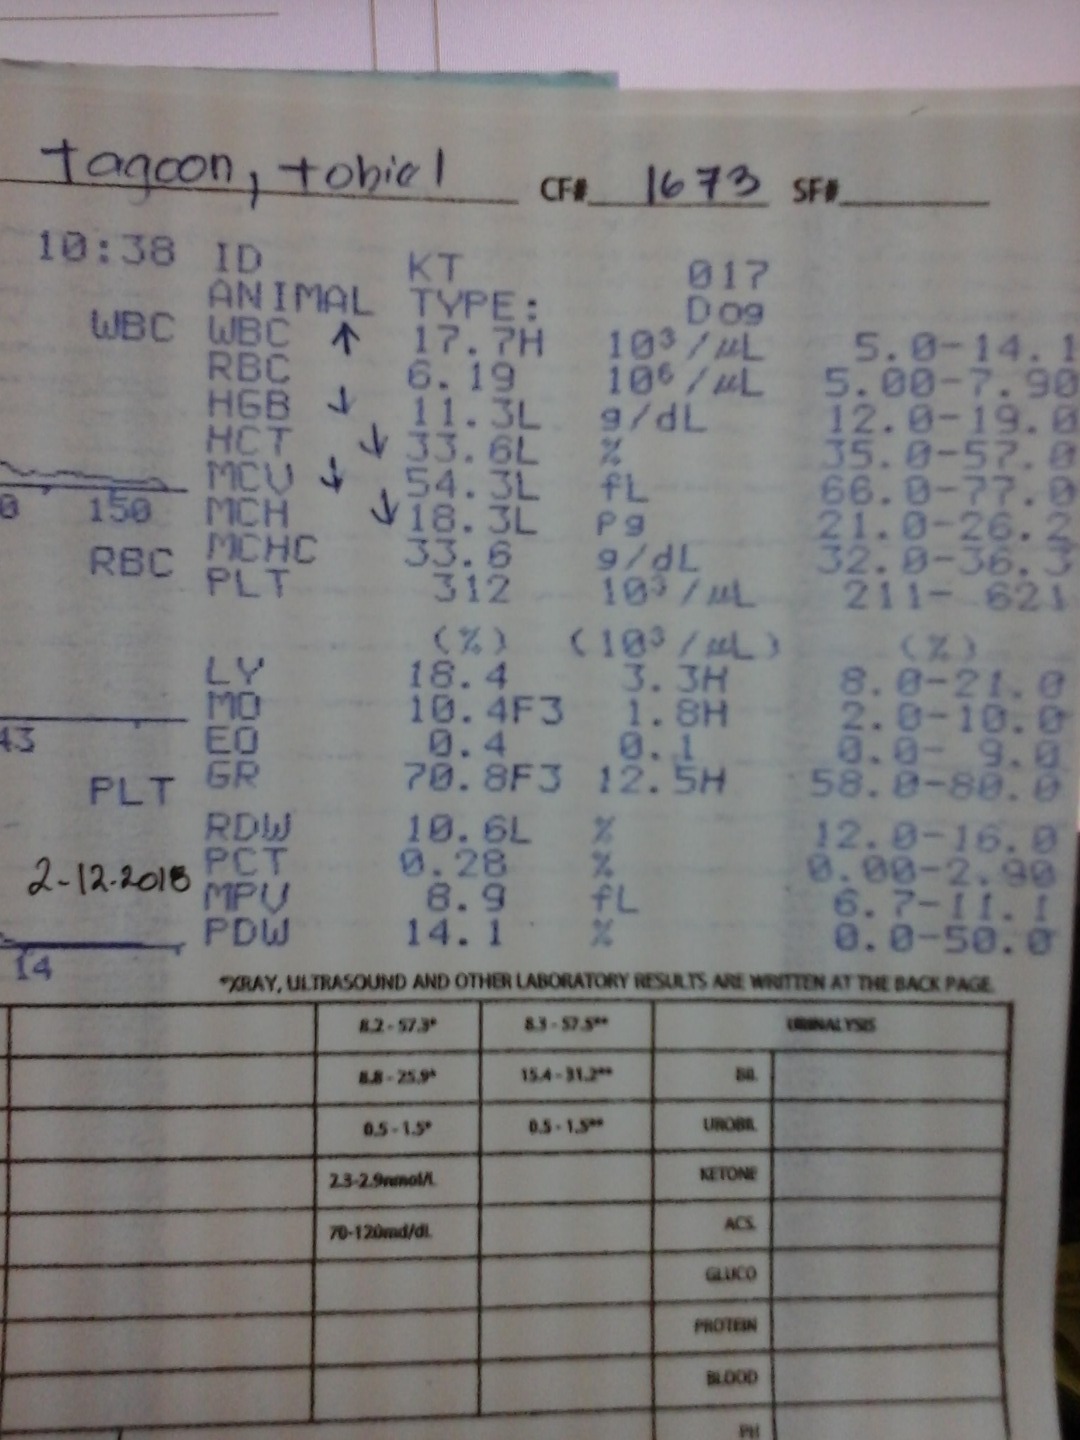 tagoon, tobiel CF# 1673 SF#
10:38 ID KT 017
ANIMAL TYPE: Dog
WBC WBC ↑ 17.7H 10³/µL 5.0-14.1
RBC 6.19 10⁶/µL 5.00-7.90
HGB ↓ 11.3L g/dL 12.0-19.0
HCT ↓ 33.6L % 35.0-57.0
MCV ↓ 54.3L fL 66.0-77.0
0 150 MCH ↓ 18.3L pg 21.0-26.2
RBC MCHC 33.6 g/dL 32.0-36.3
PLT 312 10³/µL 211- 621
(%) (10³/µL) (%)
LY 18.4 3.3H 8.0-21.0
MO 10.4F3 1.8H 2.0-10.0
43 EO 0.4 0.1 0.0- 9.0
PLT GR 70.8F3 12.5H 58.0-80.0
RDW 10.6L % 12.0-16.0
2-12-2018 PCT 0.28 % 0.00-2.90
MPV 8.9 fL 6.7-11.1
PDW 14.1 % 0.0-50.0
14
*XRAY, ULTRASOUND AND OTHER LABORATORY RESULTS ARE WRITTEN AT THE BACK PAGE.
8.2 - 57.3* 8.3 - 57.5** URINALYSIS
8.8 - 25.9* 15.4 - 31.2** BIL
0.5 - 1.5* 0.5 - 1.5** UROBIL
2.3-2.9nmol/L KETONE
70-120md/dl. ACS.
GLUCO
PROTEIN
BLOOD
PH